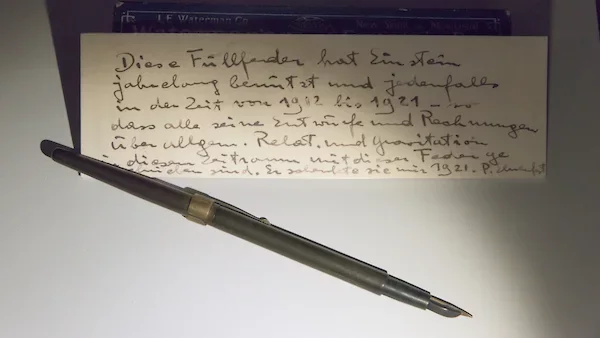 L.E. Waterman Co.
Diese Füllfeder hat Einstein
jahrelang benützt und jedenfalls
in der Zeit von 1912 bis 1921 – so
dass alle seine Entwürfe und Rechnungen
über allgem. Relat. und Gravitation
in diesem Zeitraum mit dieser Feder ge
sind. Er schenkte sie mir 1921. P. Ehrenfest